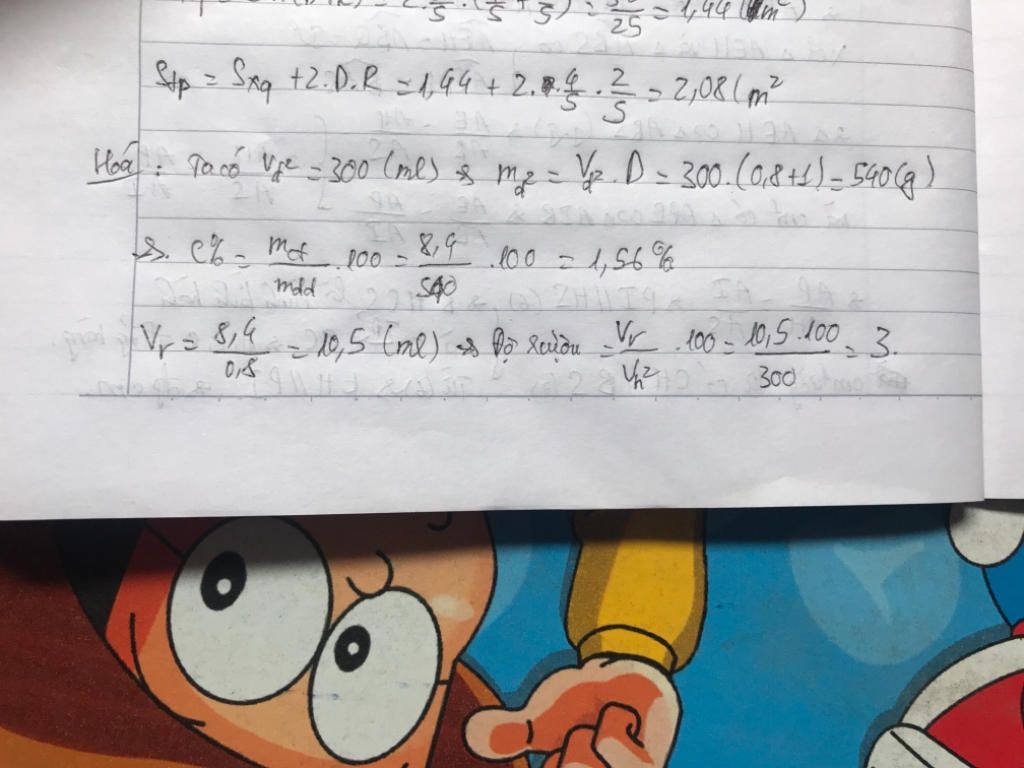 25 = 1,44 (m²)
Stp = Sxq + 2.D.R = 1,44 + 2. 4/5 . 2/5 = 2,08 (m²
Hoá : Ta có Vd² = 300 (ml) => md² = Vd² . D = 300.(0,8+1) = 540 (g)
=> C% = mct/mdd .100 = 8,4/540 .100 = 1,56%
Vr = 8,4/0,8 = 10,5 (ml) => Độ rượu = Vr/Vh² .100 = 10,5.100/300 = 3.